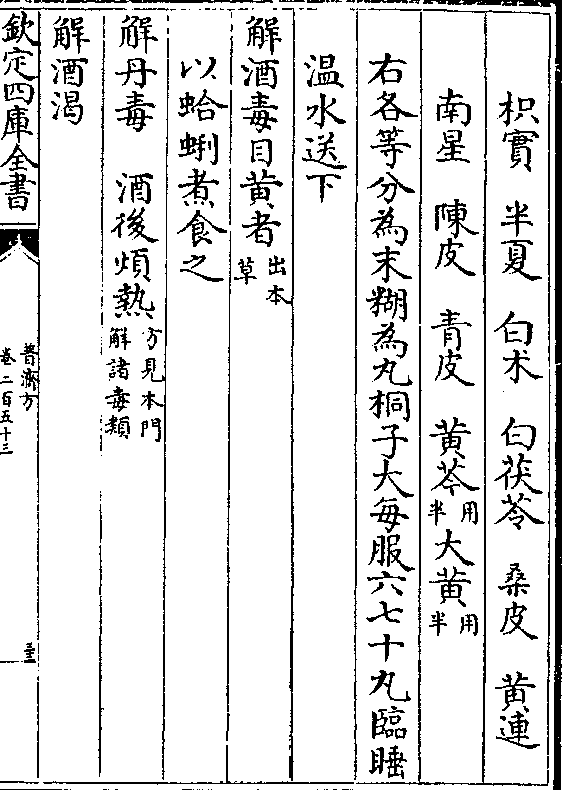 枳實　半夏　白术　白茯苓　桑皮　黄連
南星　陳皮　青皮　黄芩用半大黄用半
右各等分為末糊為丸桐子大每服六七十丸臨睡
温水送下
解酒毒目黄者出本草
以蛤蜊煮食之
解丹毒　酒後煩熱方見本門解諸毒類
解酒渴
欽定四庫全書
普濟方
卷二百五十三